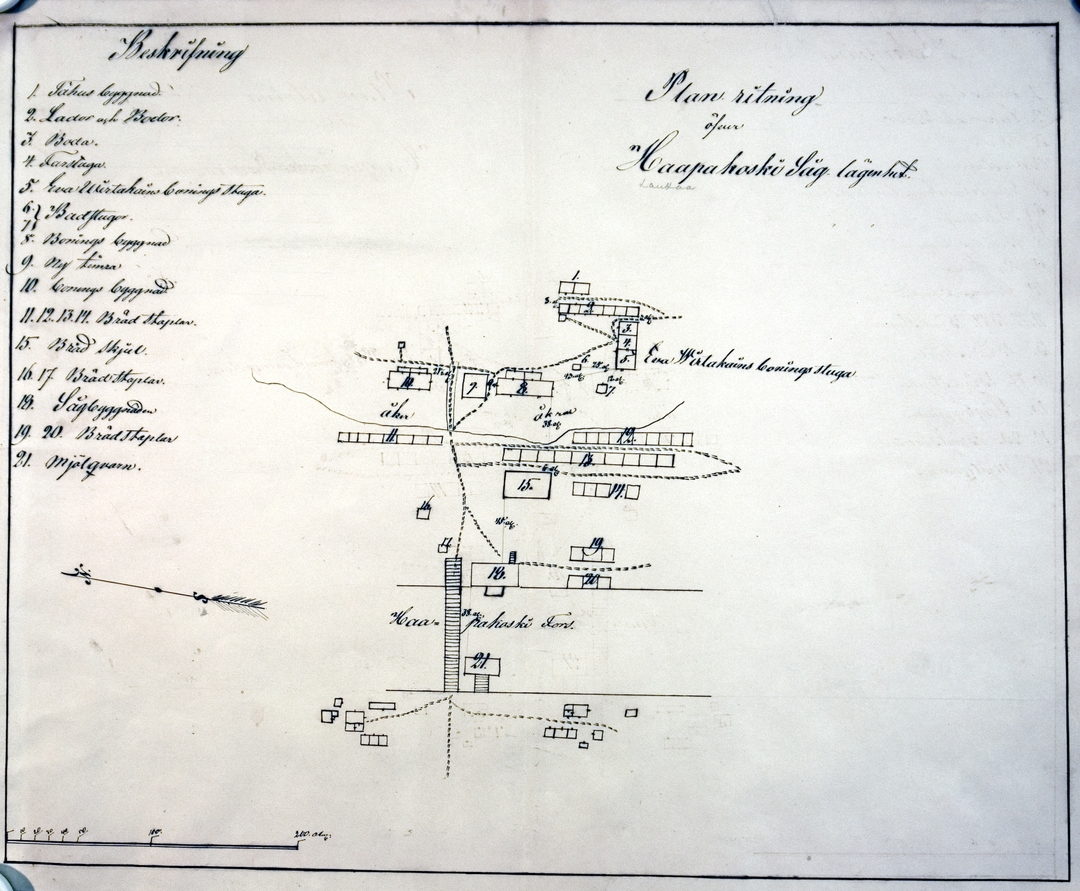 Beskrifning
1. Fähus byggnad.
2. Lador och Bodor.
3. Boda.
4. Farstuga.
5. Eva Wirtakains bonings Stuga.
6. } Badstugor.
7.
8. Bonings byggnad
9. Ny timra
10. bonings byggnad
11. 12. 13. 14. Bräd Staplar.
15. Bräd Skjul.
16. 17. Bräd Staplar.
18. Sågbyggnaden
19. 20. Bräd Staplar
21. Mjölqvarn.
Plan ritning
öfver
Haapakoski Såg lägenhet.
Laukaa
1.
2.
3.
4.
5.
Eva Wirtakains bonings stuga
6.
7.
8.
9.
10.
åker
åkrar
11.
12.
13.
14.
15.
16.
17.
18.
19.
20.
Haa=pakoski Fors.
21.
N
S
100.
200. aln.